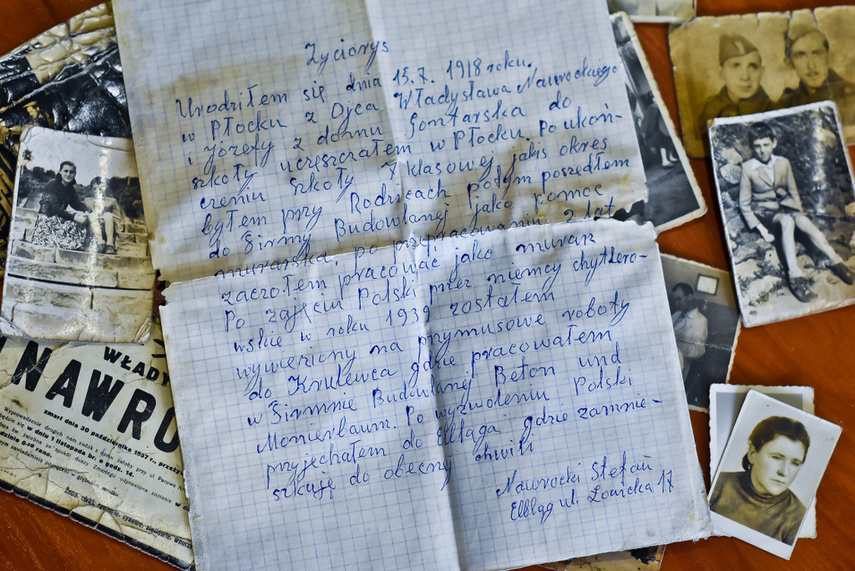 Życiorys
Urodziłem się dnia 15.7. 1918 roku.
w Płocku z Ojca Władysława Nawrockiego
i Józefy z domu Gontarska do
szkoły uczęszczałem w Płocku. Po ukoń-
czeniu szkoły 7 klasowej jakiś okres
byłem przy Rodzicach potym poszedłem
do Firmy Budowlanej jako pomoc
murarska, po przepracowaniu 2 lat
zaczołem pracować jako murarz
Po zajęciu Polski przez niemcy chytlero-
wskie w roku 1939 zostałem
wywieziony na przymusowe roboty
do Krulewca gdzie pracowałem
w Firmnie Budowlanej Beton und
Monierbaum. Po wyzwoleniu Polski
przyjechałem do Elbląga gdzie zamnie-
szkuję do obecnej chwili
Nawrocki Stefan
Elbląg ul. Łowicka 17
WŁADY
NAWRO
zmarł dnia 30 października 1957 r. przeży
w dniu 1 listopada br. o godz. 14.